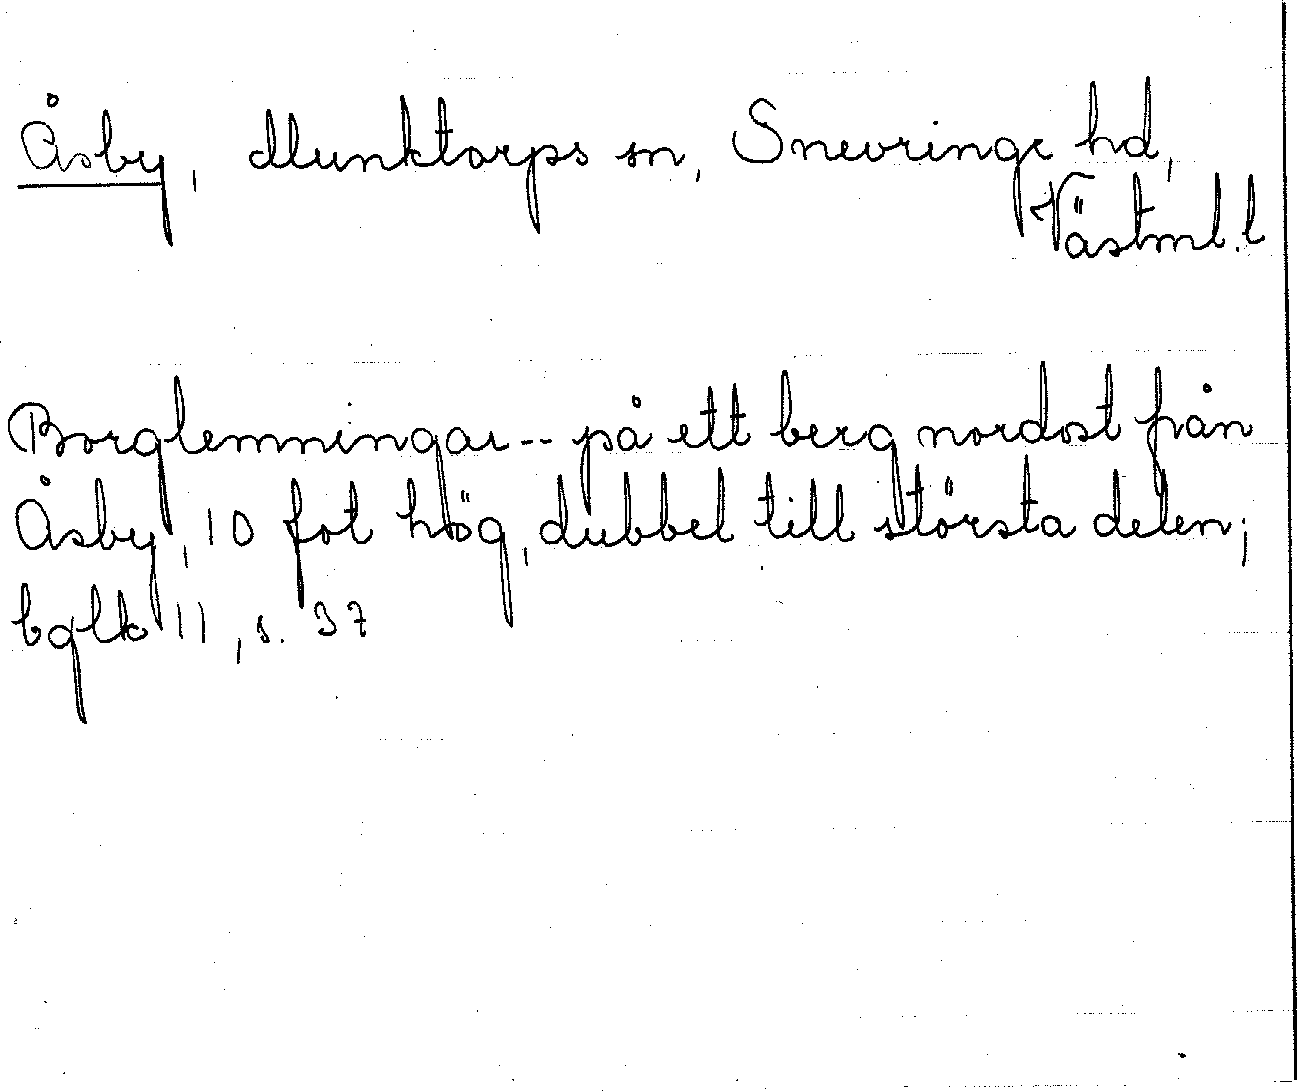 Åsby, Munktorps sn, Snevringe hd,
Västml. l
Borglemningar -- på ett berg nordost från
Åsby, 10 fot hög, dubbel till största delen;
bglk 11, s. 37